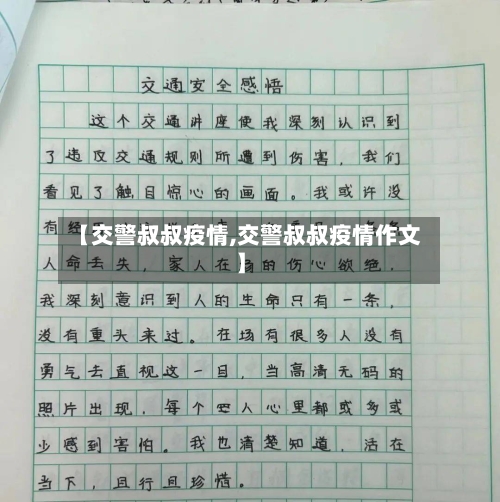 交通安全感悟
这个交通讲座使我深刻认识到
了违反交通规则所遭到伤害，我们
看见了触目惊心的画面。我或许没
有经
【交警叔叔疫情,交警叔叔疫情作文
】
人命丢失，家人在 的伤心欲绝，
我深刻意识到人的生命只有一条，
没有重头来过。在场有很多人没有
勇气去直视这一目，当高清无码的
照片出现，每个 人心里都或多或
少感到害怕。我也清楚知道，活在
当下，且行且珍惜。